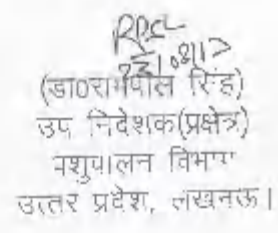 (डा0रामपाल सिंह)
उप निदेशक(प्रक्षेत्र)
पशुपालन विभाग
उत्तर प्रदेश, लखनऊ।